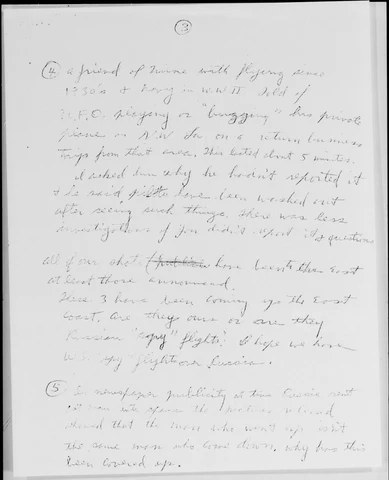 3
4 a friend of mine with flying since
1930's & Navy in W.W II told of
U.F.O. or "bugging" his private
plane on on a return business
trip from that area. This lasted about 5 minutes.
I asked him why he hadn't reported it
& he said pilots have been washed out
after seeing such things. There was less
investigation if you didn't report it & questions
all of our shots have been to the East
at least those announced.
These 3 have been coming up the East
Coast. are they ours or are they
Russian "spy" flights? I hope we have
"spy" flights over Russia.
5 newspaper publicity at time Russia sent
a man into space the
showed that the man who went up isn't
the same man who came down. why has this
been covered up.